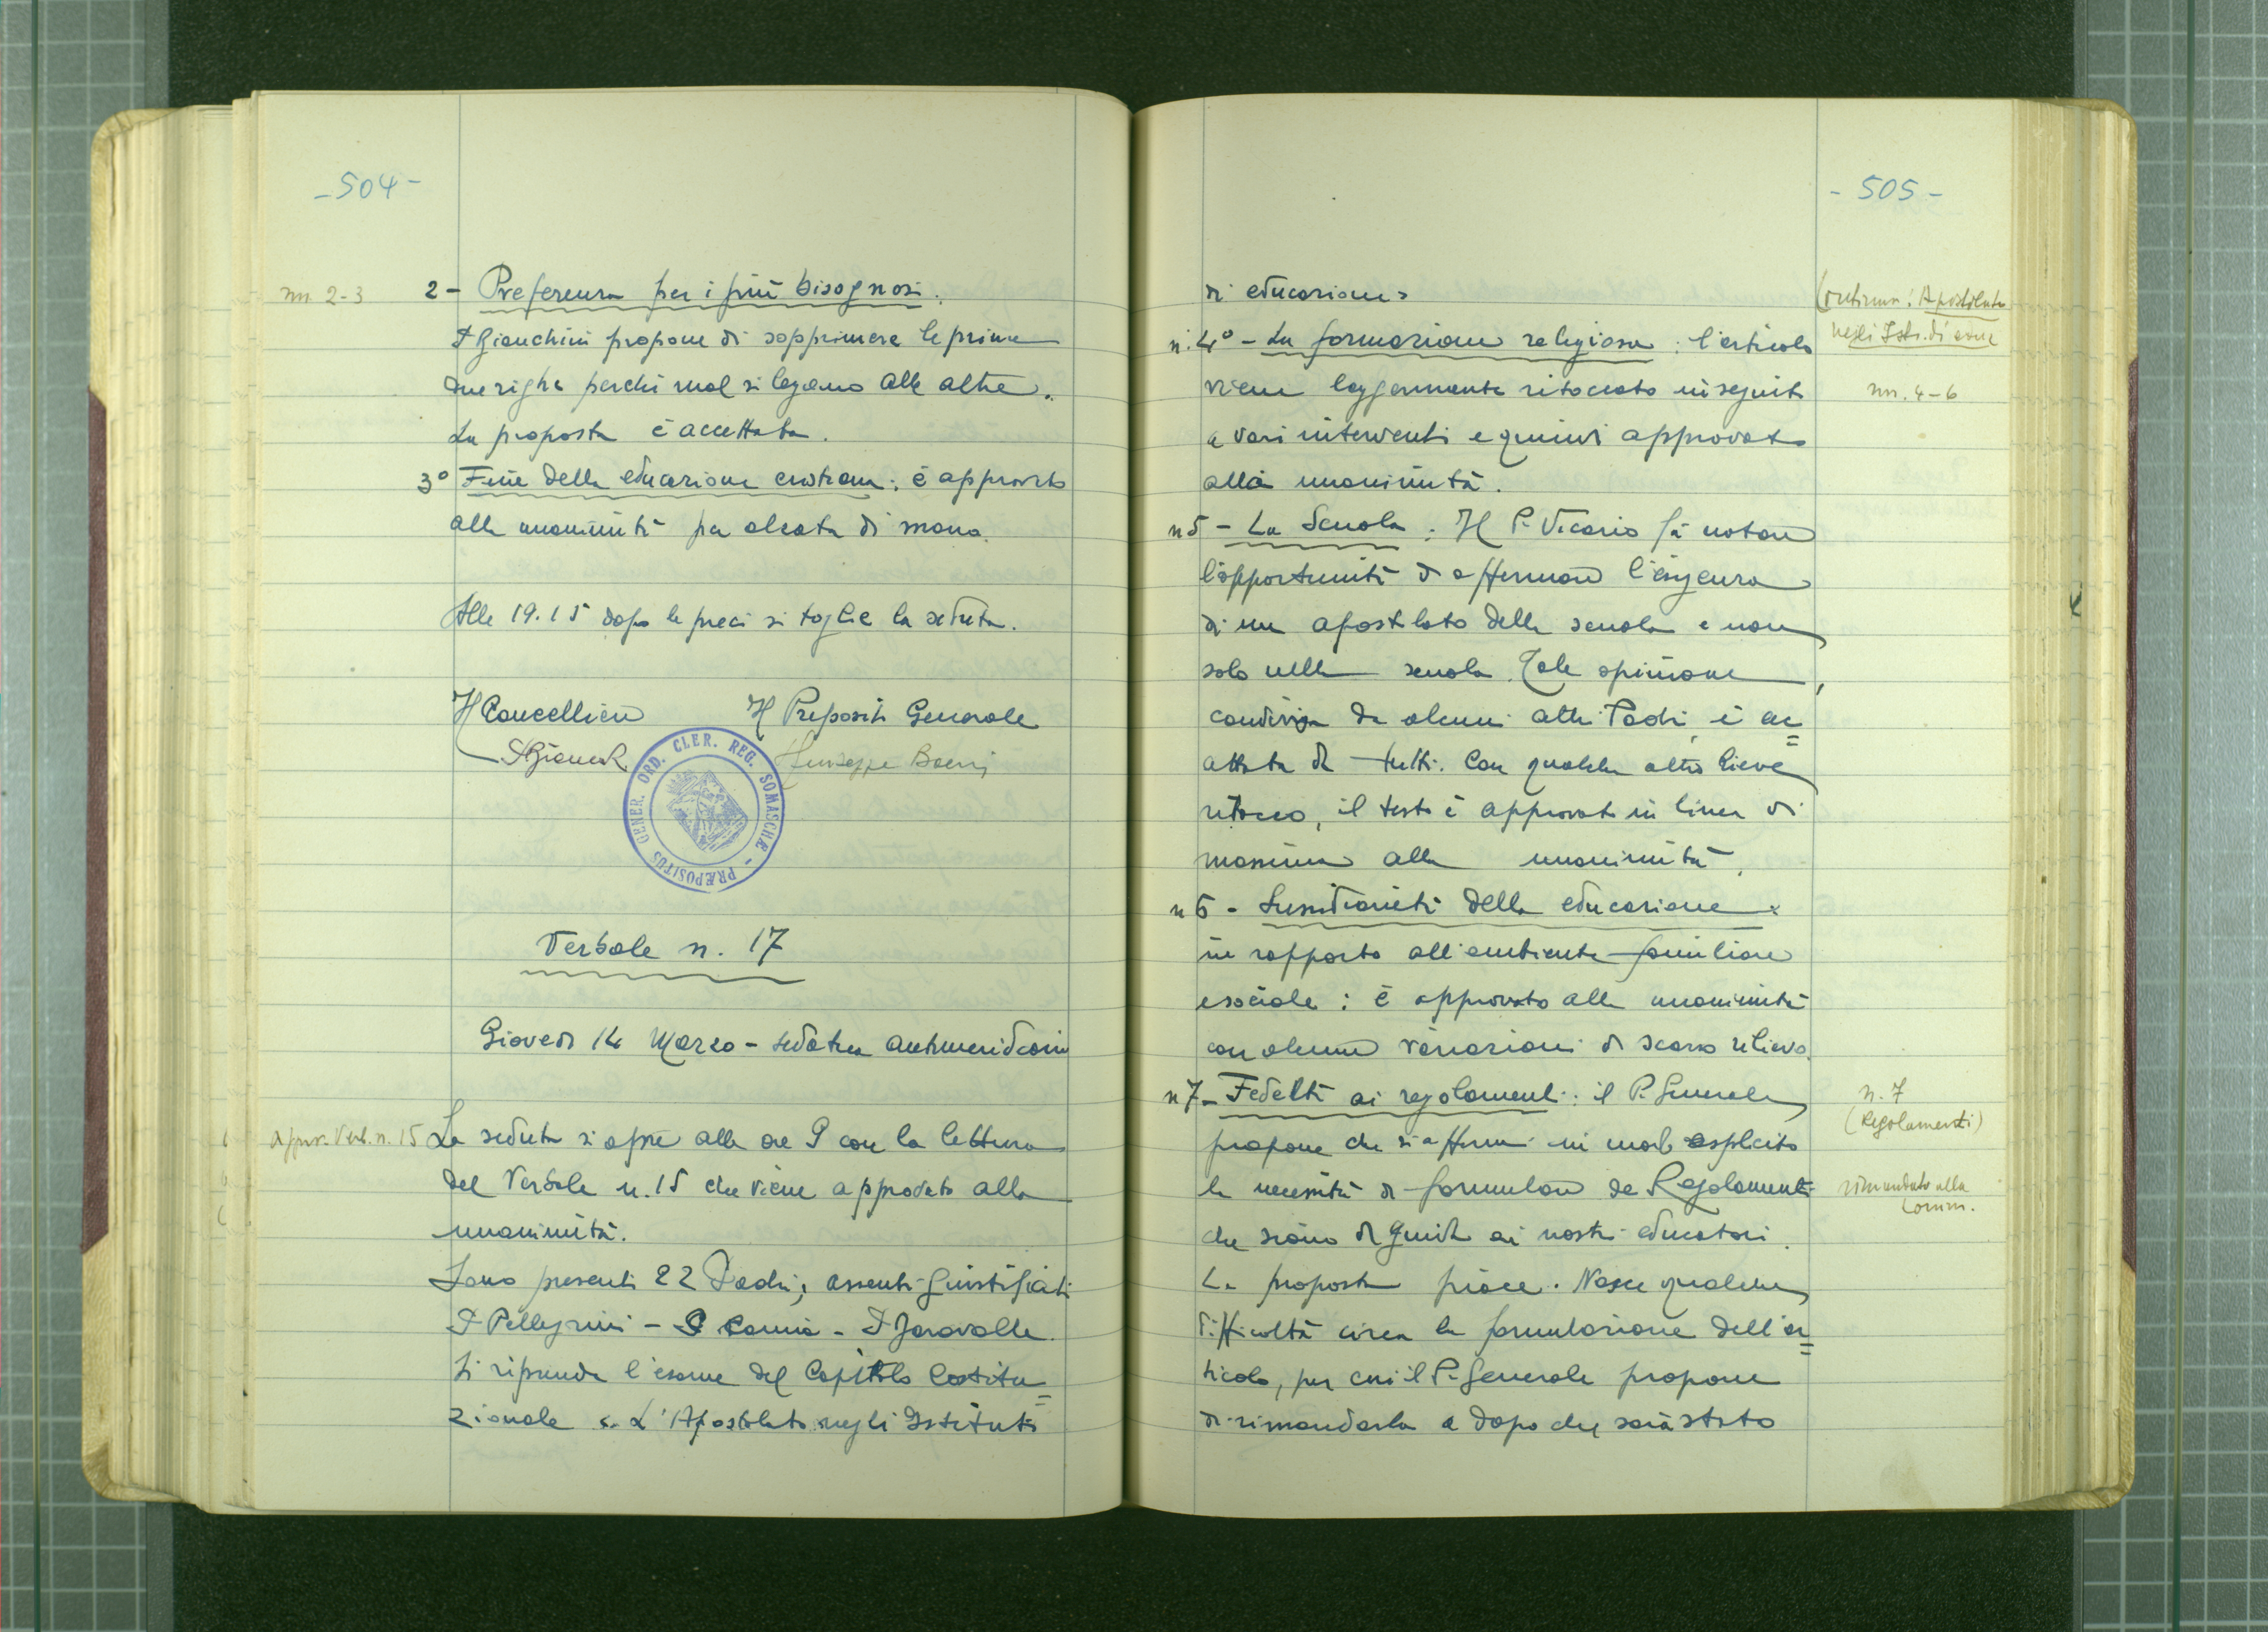 -504-
nn. 2-3
2- Preferenza per i più bisognosi.
P Bianchini propone di sopprimere le prime
due righe perché mal si legano alle altre.
La proposta è accettata.
3° Fine della educazione cristiana: è approvato
alla unanimità per alzata di mano.
Alle 19.15 dopo le preci si toglie la seduta.
Il Cancelliere Il Preposito Generale
Giuseppe Boeris
PRÆPOSITUS GENER. ORD. CLER. REG. SOMASCHÆ -
Verbale n. 17
Giovedì 14 Marzo - seduta antimeridiana
approv. Verb. n. 15
La seduta si apre alle ore 9 con la lettura
del Verbale n. 15 che viene approvato alla
unanimità.
Sono presenti 22 Padri; assenti giustificati
P Pellegrini - P - P
Si riprende l'esame del Capitolo Costitu=
zionale L'Apostolato negli Istituti
-505-
di educazione
(continua: Apostolato
negli Ist. di educ
n. 4° - La formazione religiosa: l'articolo
viene leggermente ritoccato in seguito
nn. 4-6
a vari interventi e quindi approvato
alla unanimità.
n 5 - La Scuola: Il P. Vicario fa notare
l'opportunità di affermare l'esigenza
di un apostolato della scuola e non
solo nella scuola. Tale opinione,
condivisa da alcuni altri Padri, è ac=
cettata da tutti. Con qualche altro lieve
ritocco, il testo è approvato in linea di
massima alla unanimità.
n 6 - Sussidiarietà della educazione
in rapporto all'ambiente familiare
e sociale: è approvato alla unanimità
con alcune variazioni di scarso rilievo.
n 7 - Fedeltà ai regolamenti: il P. Generale
n. 7
(Regolamenti)
propone che si affermi in modo esplicito
la necessità di formulare dei Regolamenti
rimandato alla
Comm.
che siano di guida ai nostri educatori.
La proposta piace. Nasce qualche
difficoltà circa la formulazione dell'ar=
ticolo, per cui il P. Generale propone
di rimandarla a dopo che sarà stato